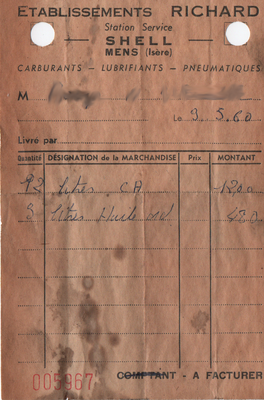 ETABLISSEMENTS RICHARD
Station Service
— SHELL —
MENS (Isère)
CARBURANTS — LUBRIFIANTS — PNEUMATIQUES
M
Le 3.5.60
Livré par
Quantité DÉSIGNATION de la MARCHANDISE Prix MONTANT
litres CA
litres Huile
005967
COMPTANT - A FACTURER